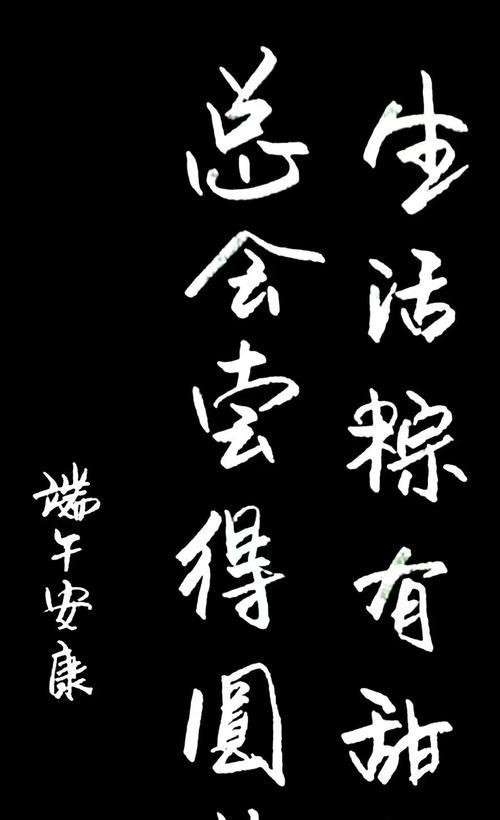 生活粽有甜
总会尝得圆
端午安康